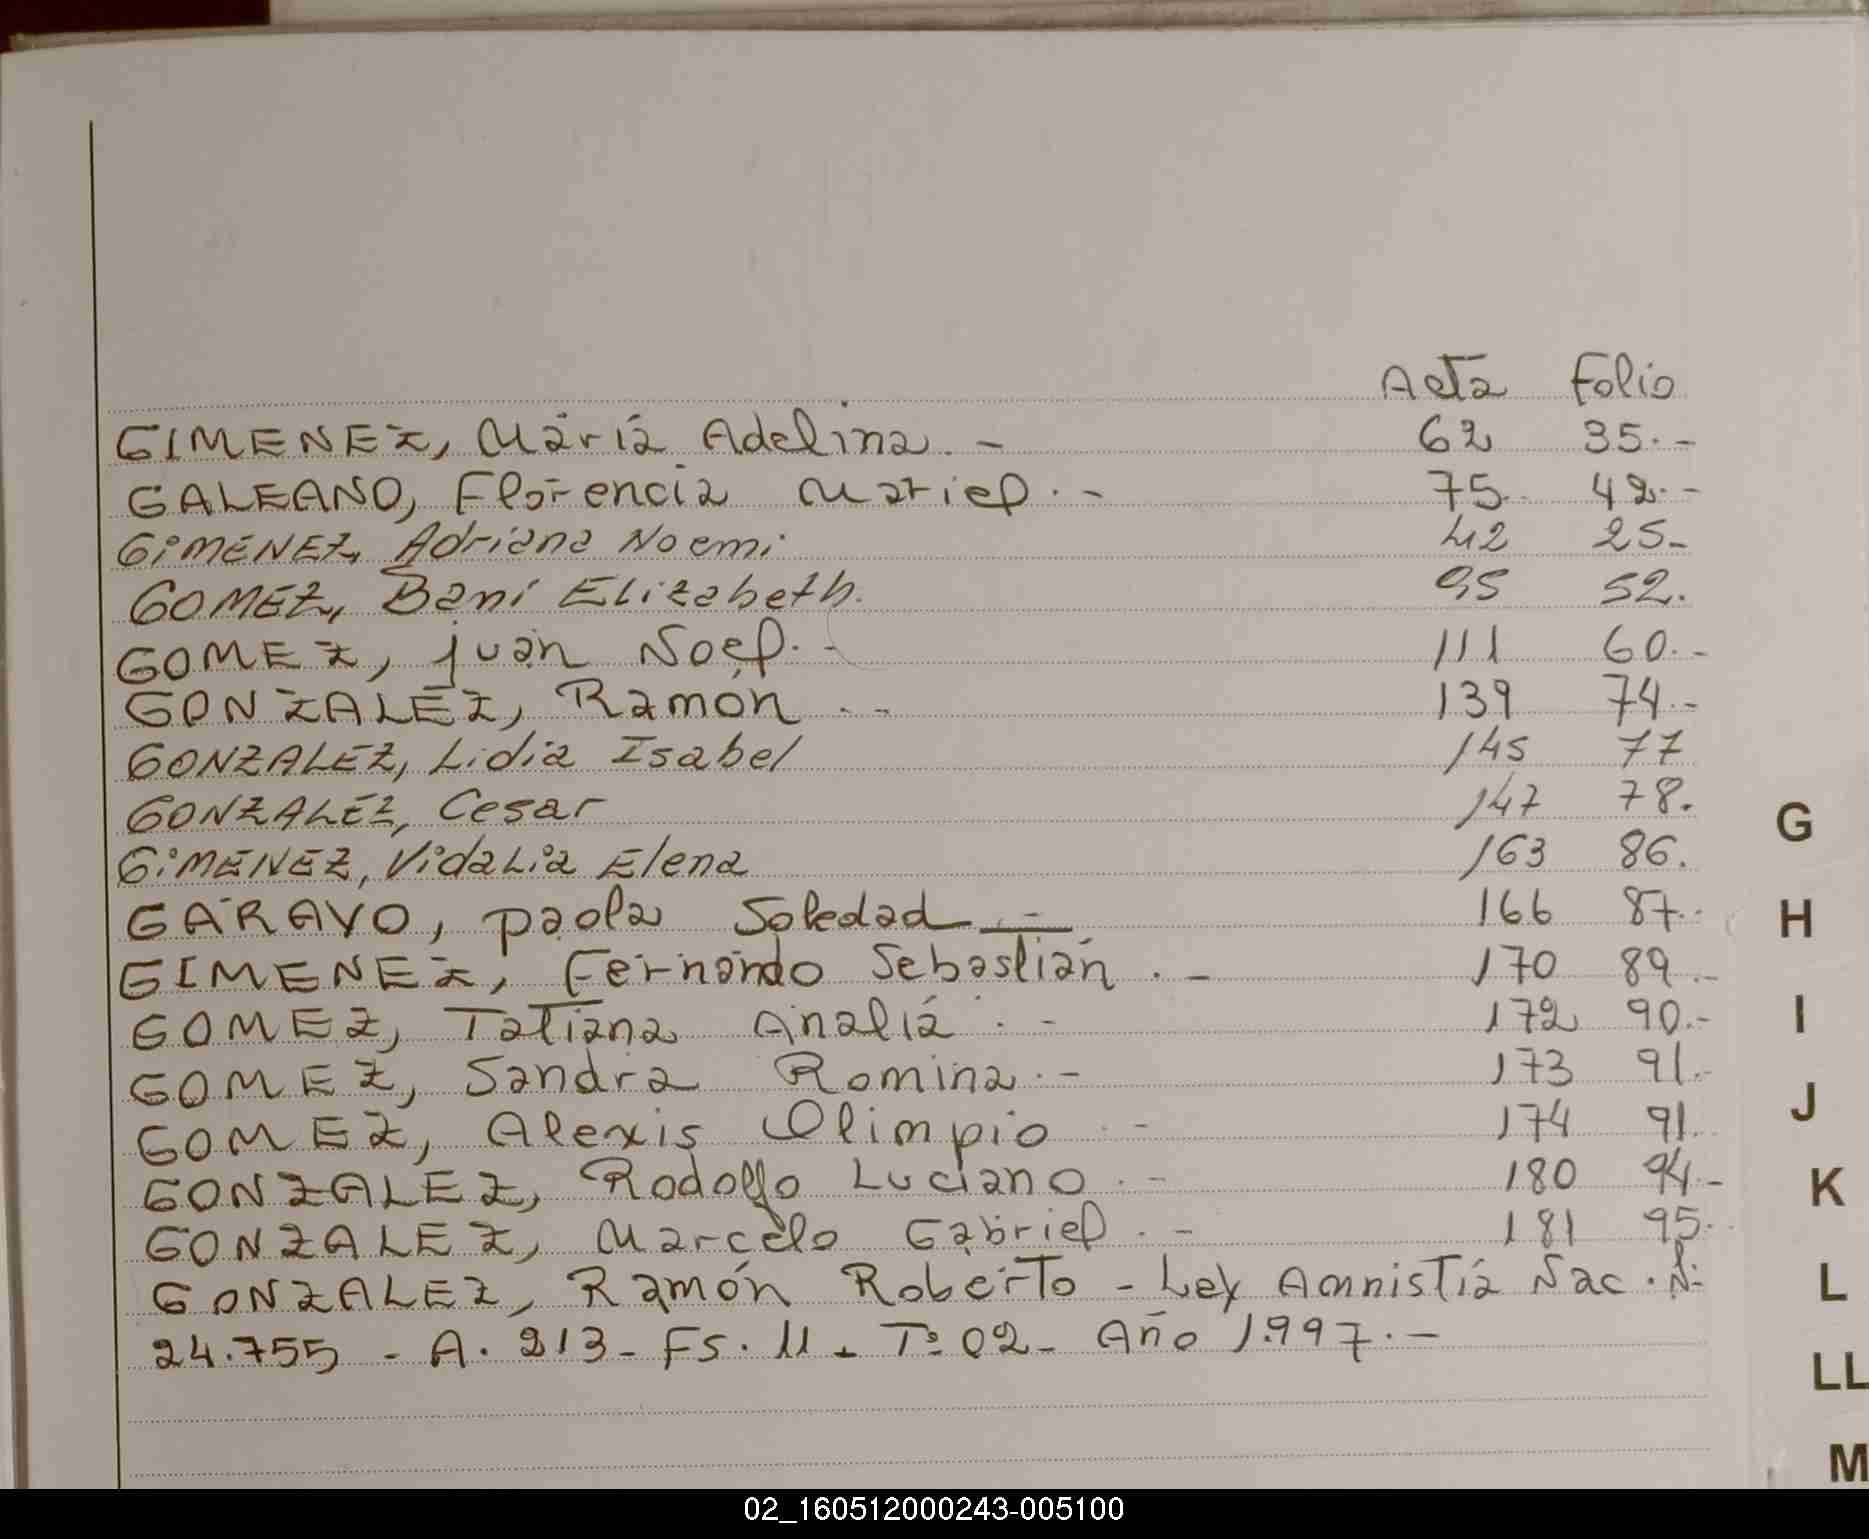 Acta Folio
GIMENEZ, María Adelina.- 62 35.-
GALEANO, Florencia Mariel.- 75. 42.-
GiMENEZ, Adriana Noemi 42 25-
GOMEZ, Bani Elizabeth. 95 52.
GOMEZ, juan Noel.- 111 60.-
GONZALEZ, Ramón.- 139 74.-
GONZALEZ, Lidia Isabel 145 77
GONZALEZ, Cesar 147 78.
GiMENEZ, VidaLia Elena 163 86.
GARAYO, paola Soledad.- 166 87.-
GIMENEZ, Fernando Sebastián.- 170 89.-
GOMEZ, Tatiana Analía.- 172 90.-
GOMEZ, Sandra Romina.- 173 91.-
GOMEZ, Alexis Olimpio.- 174 91.
GONZALEZ, Rodolfo Luciano.- 180 94.-
GONZALEZ, Marcelo Gabriel.- 181 95.
GONZALEZ, Ramón Roberto - Ley Amnistía Nac. N:
24.755 - A. 213- Fs. 11 - T: 02- Año 1.997.-
G
H
I
J
K
L
LL
M
02_160512000243-005100